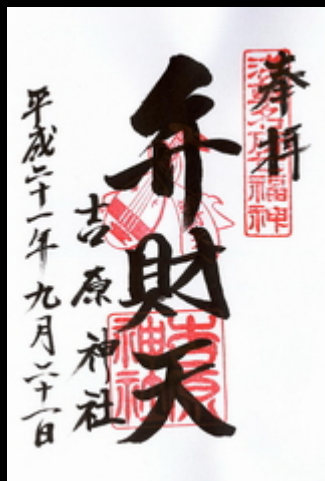 奉拝
浅草名所七福神
弁財天
吉原神社
吉原神社
平成二十一年九月二十一日